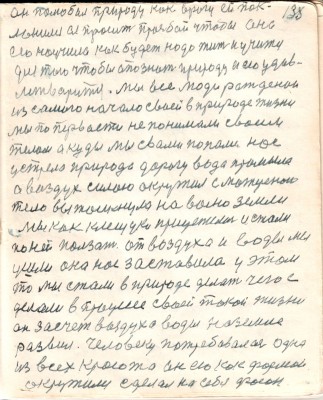 38
он полюбил природу как другу ей пок-
лонился просит просьбой чтобы она
его научила как будет надо жить и учить
для того чтобы опознать природу и ею удов-
летварить. Мы все люди рожденаи
из самого начало своей в природе жизни
мы по первасти не понимали своем
телом а куды мы сваим попали нас
устрела природа дорогу вода промыла
а ваздух силою окружил с матушкой
тело вытолкнула на волю земли
мы как клещуки прицепились и стали
по ней ползать. от воздуха и воды мы
ушли она нас заставила у этом
то мы стали в природе делать чего с
делали в процессе своей такой жизни
он за счет воздуха воды на земле
развил. Человеку потребовалося одна
из всех красота он его как формой
окружили сделал на себя фасон